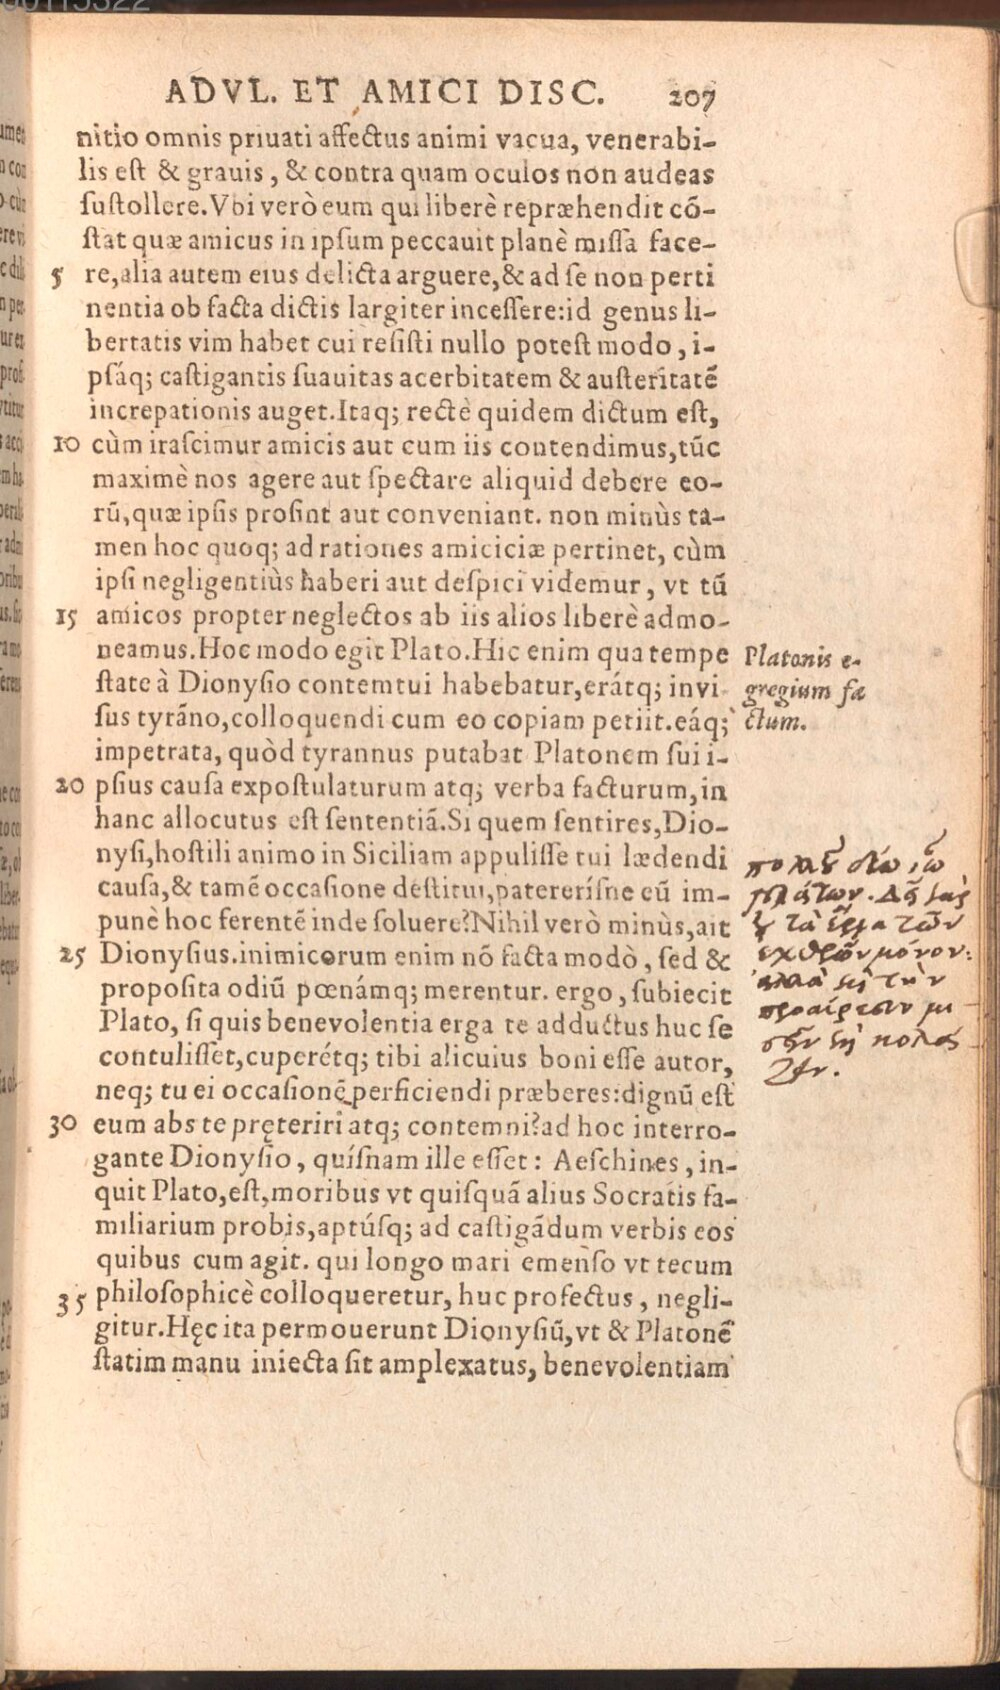 ADVL. ET AMICI DISC. 207
nitio omnis priuati affectus animi vacua, venerabi-
lis est & grauis, & contra quam oculos non audeas
sustollere. Vbi verò eum qui liberè repræhendit cō-
stat quæ amicus in ipsum peccauit planè missa face-
5 re, alia autem eius delicta arguere, & ad se non perti
nentia ob facta dictis largiter incessere: id genus li-
bertatis vim habet cui resisti nullo potest modo, i-
psáq; castigantis suauitas acerbitatem & austeritatē
increpationis auget. Itaq; rectè quidem dictum est,
10 cùm irascimur amicis aut cum iis contendimus, tūc
maximè nos agere aut spectare aliquid debere eo-
rū, quæ ipsis prosint aut conveniant. non minùs ta-
men hoc quoq; ad rationes amiciciæ pertinet, cùm
ipsi negligentiùs haberi aut despici videmur, vt tū
15 amicos propter neglectos ab iis alios liberè admo-
neamus. Hoc modo egit Plato. Hic enim qua tempe
state à Dionysio contemtui habebatur, erátq; invi
sus tyrāno, colloquendi cum eo copiam petiit. eáq;
impetrata, quòd tyrannus putabat Platonem sui i-
20 psius causa expostulaturum atq; verba facturum, in
hanc allocutus est sententiā. Si quem sentires, Dio-
nysi, hostili animo in Siciliam appulisse tui lædendi
causa, & tamē occasione destitui, paterer ísne eū im-
punè hoc ferentē inde soluere? Nihil verò minùs, ait
25 Dionysius. inimicorum enim nō facta modò, sed &
proposita odiū pœnámq; merentur. ergo, subiecit
Plato, si quis benevolentia erga te adductus huc se
contulisset, cuperétq; tibi alicuius boni esse autor,
neq; tu ei occasionē perficiendi præberes: dignū est
30 eum abs te pręteriri atq; contemni? ad hoc interro-
gante Dionysio, quísnam ille esset: Aeschines, in-
quit Plato, est, moribus vt quisquā alius Socratis fa-
miliarium probis, aptúsq; ad castigādum verbis eos
quibus cum agit. qui longo mari emenso vt tecum
35 philosophicè colloqueretur, huc profectus, negli-
gitur. Hęc ita permouerunt Dionysiū, vt & Platonē
statim manu iniecta sit amplexatus, benevolentiam
Platonis e-
gregium fa
ctum.
τὰ ἔργα τῶν
ἐχθρῶν μόνον·
ἀλλὰ καὶ τὴν
προαίρεσιν μι
σεῖν καὶ κολάζ